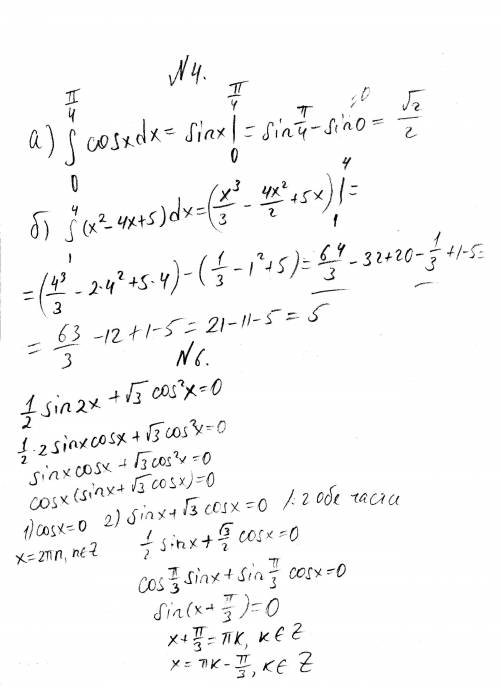 N4.
а) ∫₀^(π/4) cosxdx = sinx |₀^(π/4) = sin π/4 - sin0 = √2/2
=0
б) ∫₁⁴ (x² - 4x + 5)dx = (x³/3 - 4x²/2 + 5x) |₁⁴ =
= (4³/3 - 2·4² + 5·4) - (1/3 - 1² + 5) = 64/3 - 32 + 20 - 1/3 + 1 - 5 =
= 63/3 - 12 + 1 - 5 = 21 - 11 - 5 = 5
N6.
1/2 sin2x + √3 cos²x = 0
1/2 · 2 sinx cosx + √3 cos²x = 0
sinx cosx + √3 cos²x = 0
cosx (sinx + √3 cosx) = 0
1) cosx = 0 2) sinx + √3 cosx = 0 /: 2 обе части
x = 2πn, n∈Z 1/2 sinx + √3/2 cosx = 0
cos π/3 sinx + sin π/3 cosx = 0
sin(x + π/3) = 0
x + π/3 = πk, k∈Z
x = πk - π/3, k∈Z